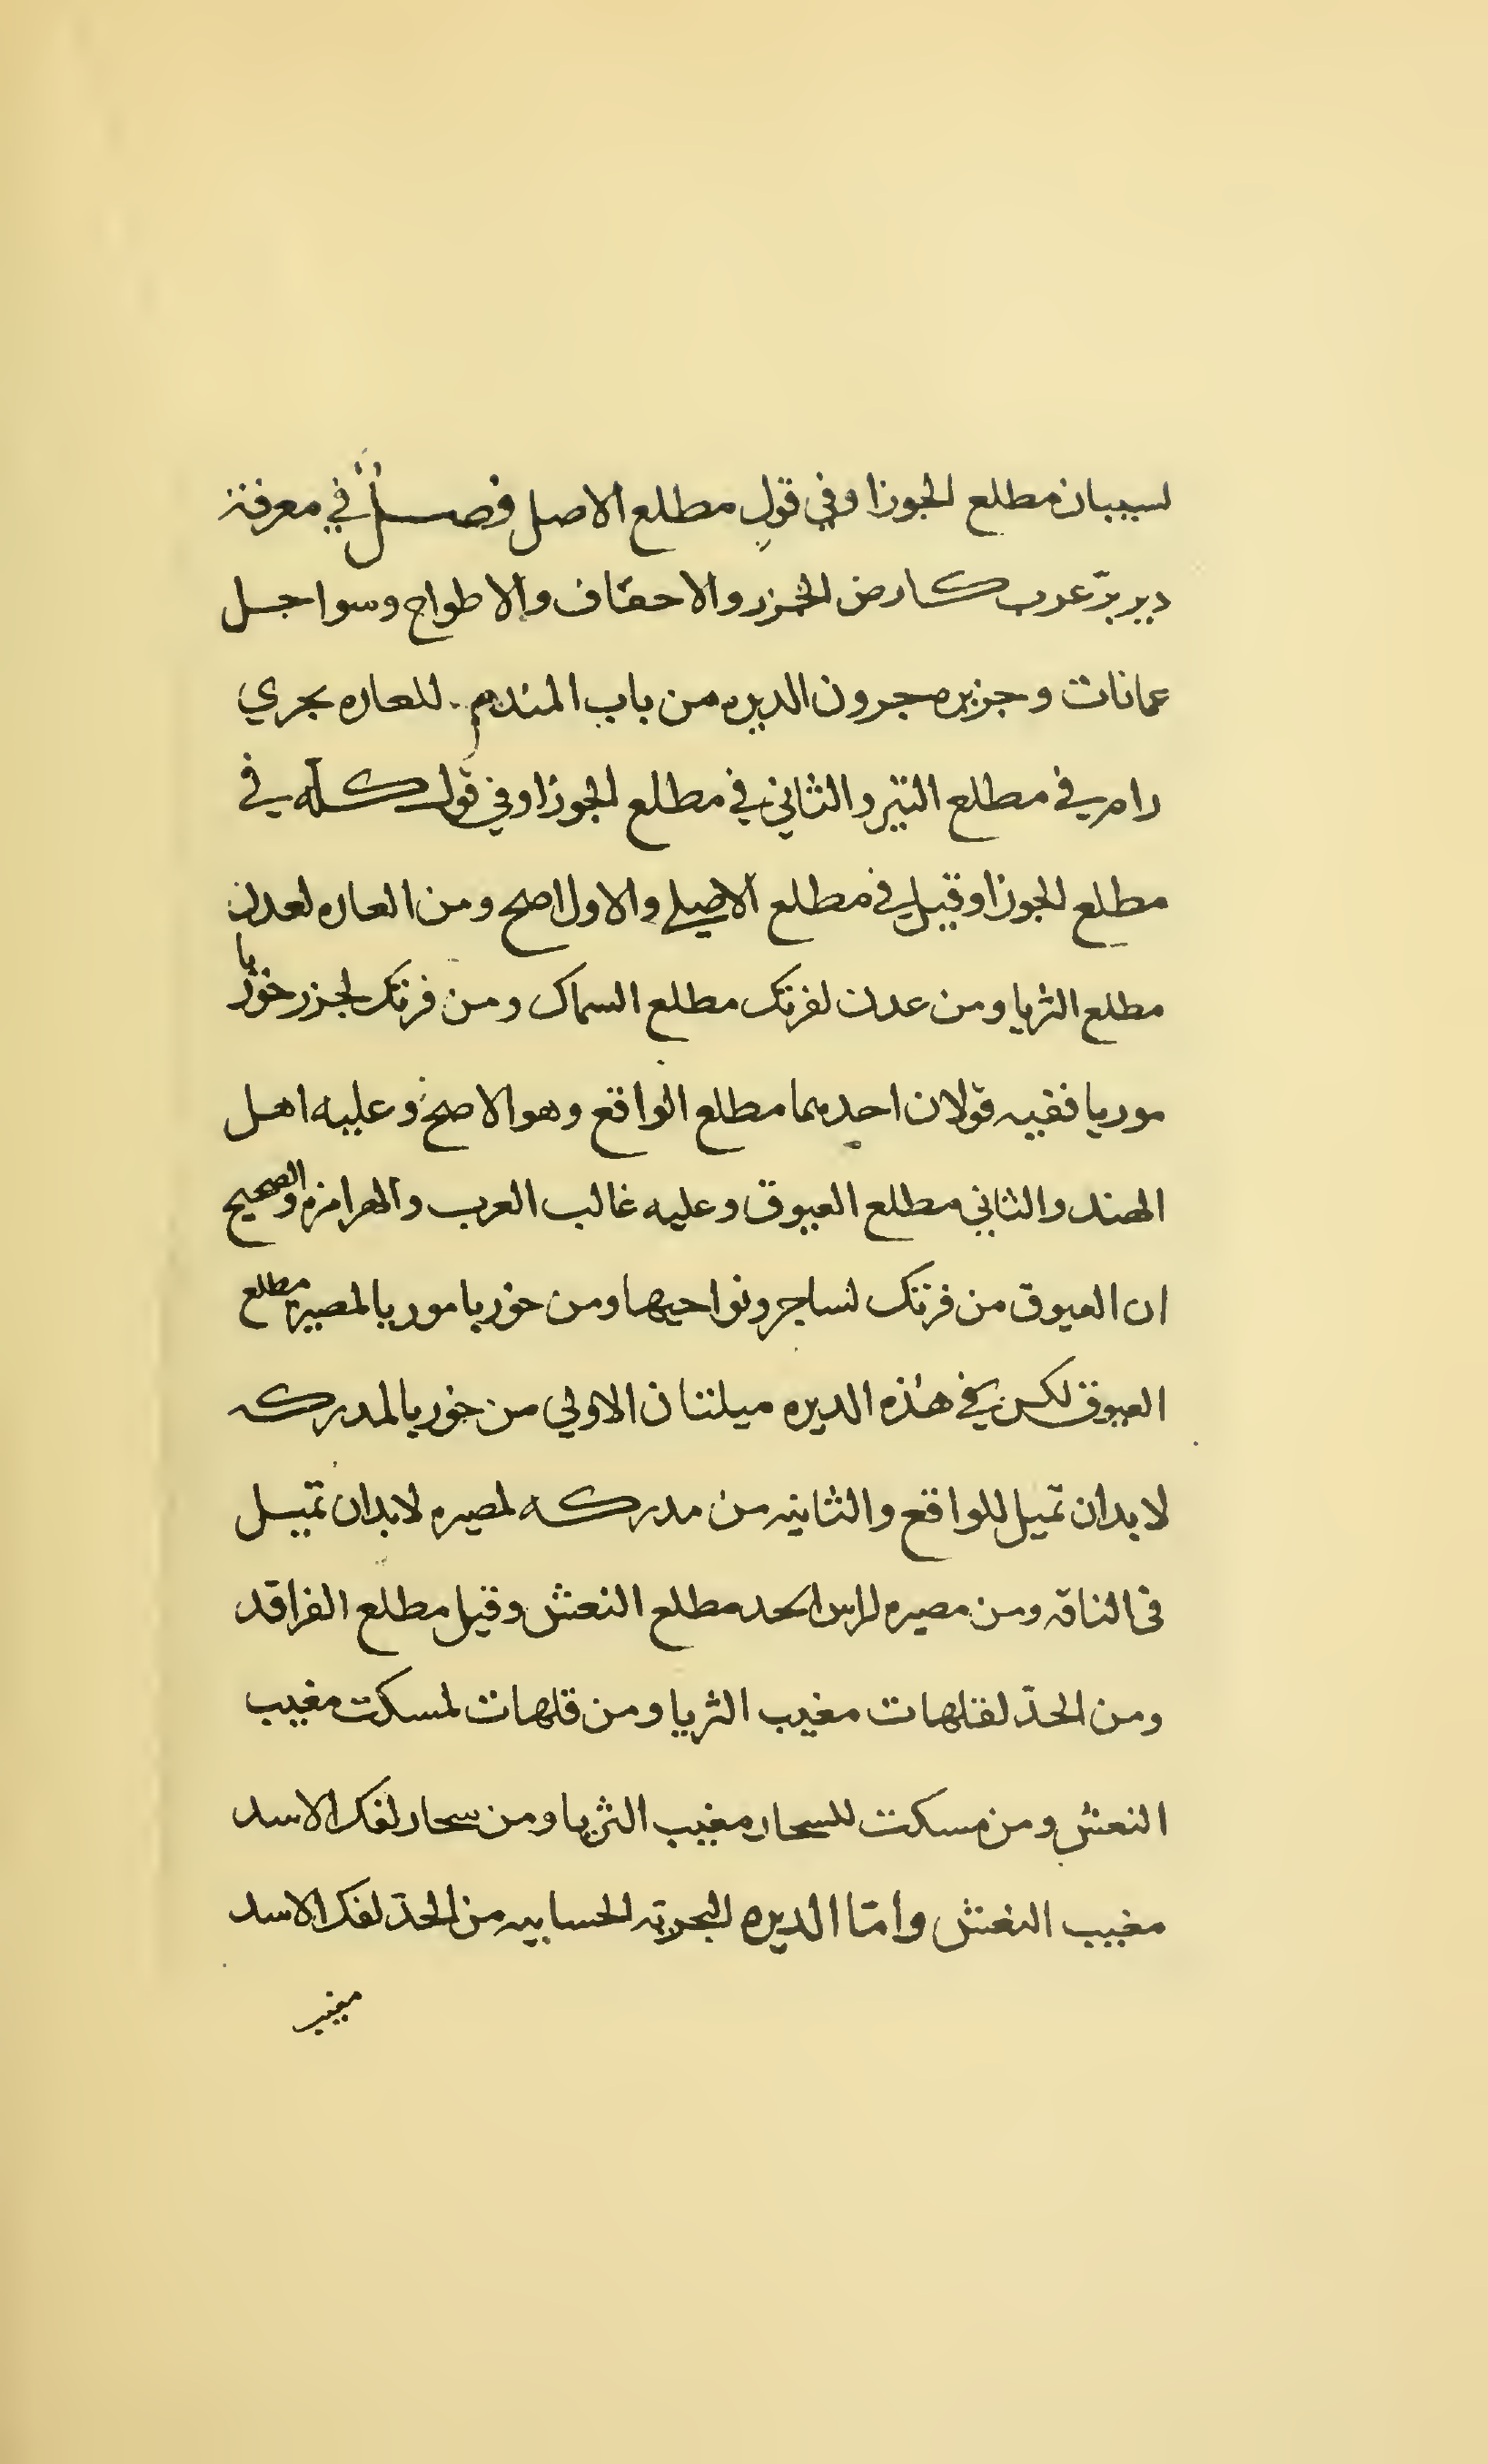 لسيبان مطلع الجوزا وفي قول مطلع الاصل فصل في معرفة
دير بر عرب كارض الخزر والاحقاف والاطواح وسواحل
عمانات وجزيره جرون الديره من باب المندم للعاره يجري
رام في مطلع التير والثاني في مطلع الجوزا وفي قول كله في
مطلع الجوزا وقيل في مطلع الاصلي والاول اصح ومن العاره لعدن
مطلع الثريا ومن عدن لفرتك مطلع السماك ومن فرتك لجزر خوريا
موريا ففيه قولان احدهما مطلع الواقع وهو الاصح وعليه اهل
الهند والثاني مطلع العيوق وعليه غالب العرب والهرامزه والصحيح
ان العيوق من فرتك لساجر ونواحيها ومن خوريا موريا لمصيره مطلع
العيوق لكن في هذه الديره ميلتان الاولي من خوريا لمدركه
لا بد ان تميل للواقع والثانيه من مدركه لمصيره لا بد ان تميل
في الناقه ومن مصيره لراس الحد مطلع النعش وقيل مطلع الفراقد
ومن الحد لقلهات مغيب الثريا ومن قلهات لمسكت مغيب
النعش ومن مسكت للسحار مغيب الثريا ومن سحار لفك الاسد
مغيب النعش وامّا الديره البحريه الحسابيه من الحد لفك الاسد
مغيب